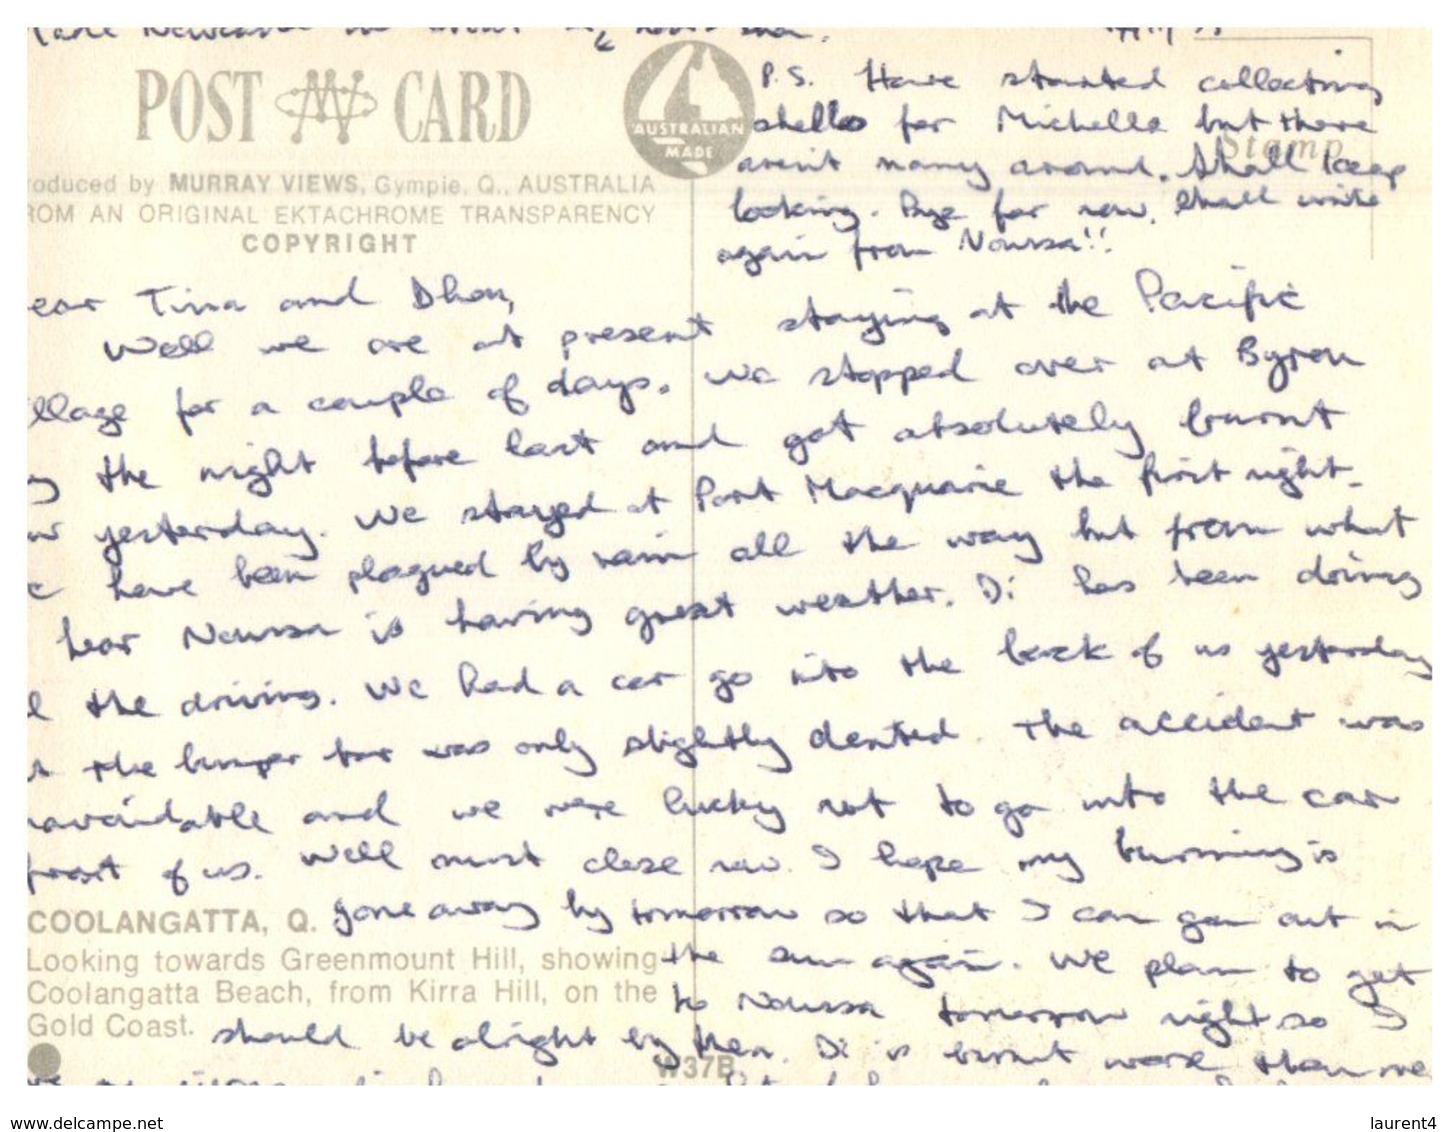 POST CARD
AUSTRALIAN
MADE
Stamp
roduced by MURRAY VIEWS, Gympie, Q., AUSTRALIA
ROM AN ORIGINAL EKTACHROME TRANSPARENCY
COPYRIGHT
P.S. Have started collecting
shells for Michelle but there
aren't many around. Shall keep
looking. Bye for now. Shall write
again from Noussa!!
ear Tina and Dhon,
Well we are at present staying at the Pacific
illage for a couple of days. We stopped over at Byron
ay the night before last and got absolutely burnt
yesterday. We stayed at Port Macquarie the first night.
have been plagued by rain all the way but from what
hear Noussa is having great weather. Di has been doing
l the driving. We had a car go into the back of us yesterday
the bumper bar was only slightly dented. The accident was
navoidable and we were lucky not to go into the car
front of us. Well must close now. I hope my burning is
gone away by tomorrow so that I can go out in
the sun again. We plan to get
to Noussa tomorrow night so I
should be alright by then. Di is burnt worse than me
COOLANGATTA, Q.
Looking towards Greenmount Hill, showing
Coolangatta Beach, from Kirra Hill, on the
Gold Coast.
W37B
www.delcampe.net
laurent4